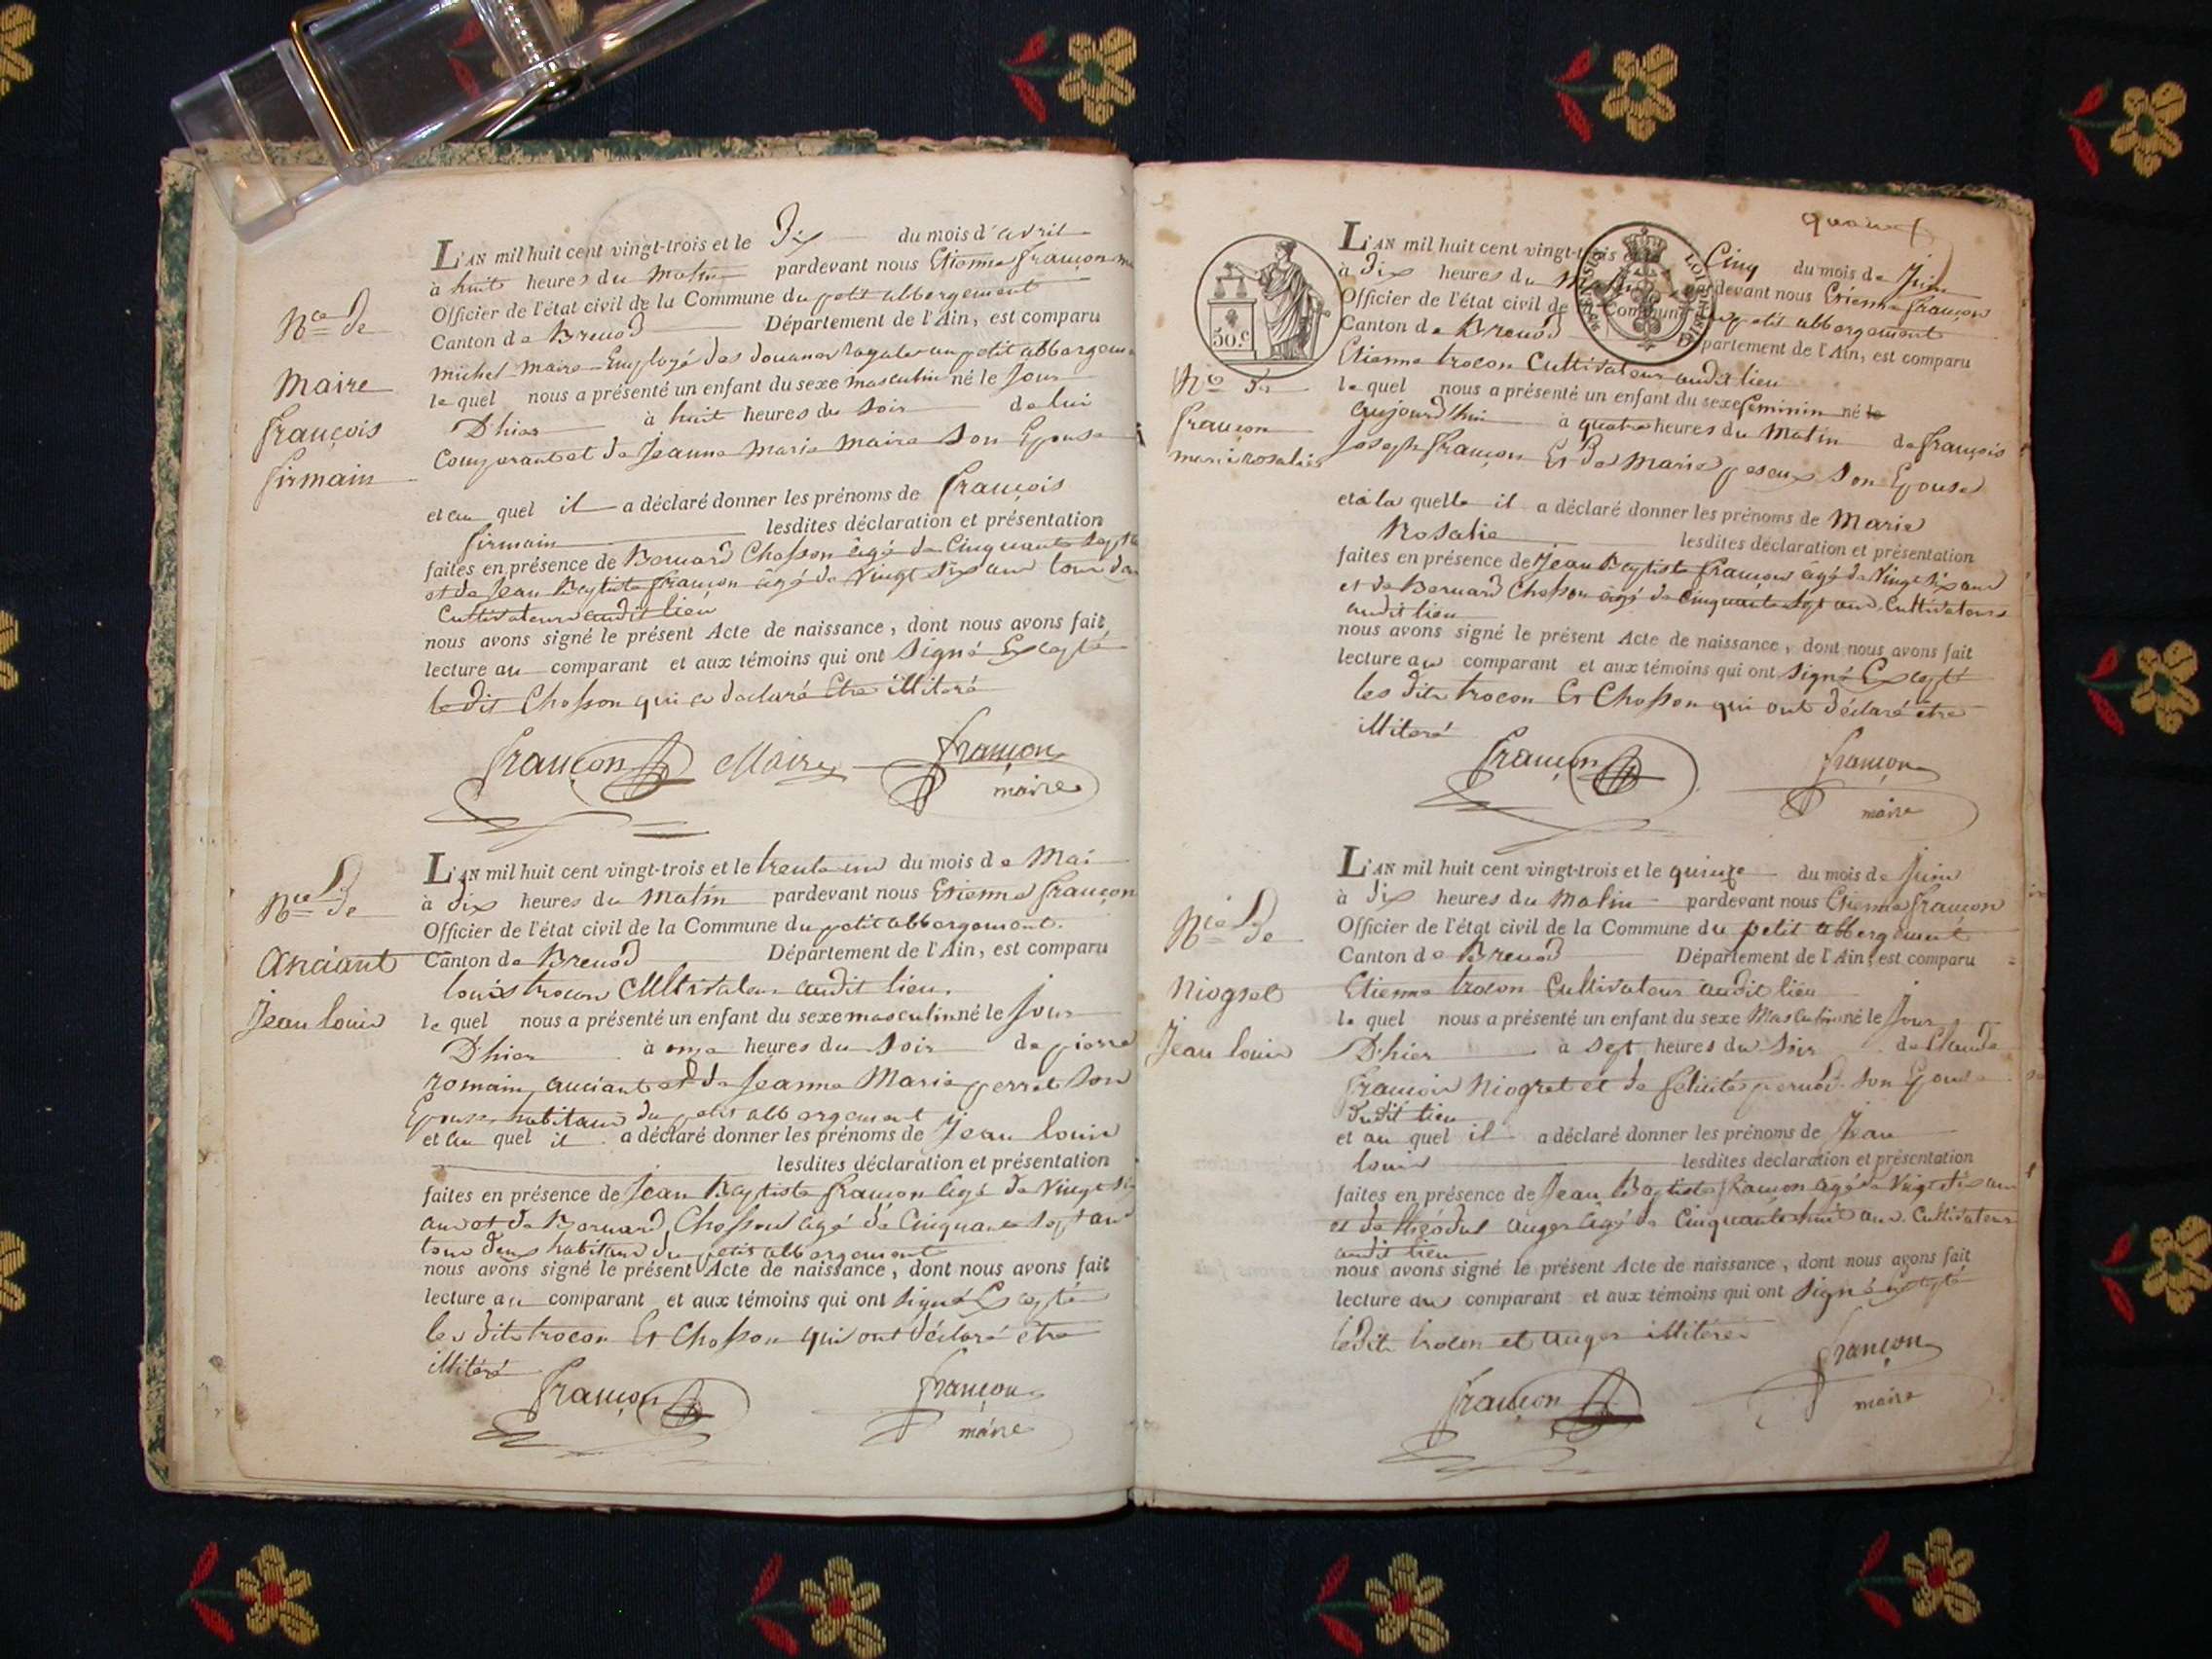 Nce de
Maire
françois
firmain
L'AN mil huit cent vingt-trois et le Dix du mois d'avril
à huit heures du Matin pardevant nous Etienne françon
Officier de l'état civil de la Commune du petit abbergement
Canton de Brenod Département de l'Ain, est comparu
michel maire Employé des douanes royales au petit abbergem
le quel nous a présenté un enfant du sexe masculin né le Jour
D'hier à huit heures du Soir de lui
Comparant et de Jeanne Marie Maire Son Epouse
et au quel il a déclaré donner les prénoms de françois
firmain lesdites déclaration et présentation
faites en présence de Bernard Chosson agé de Cinquante Sept
et de Jean Baptiste françon agé de Vingt Six ans tous deux
Cultivateurs audit lieu
nous avons signé le présent Acte de naissance, dont nous avons fait
lecture au comparant et aux témoins qui ont Signé Excepté
le dit Chosson qui a declaré Etre illiteré
françon Maire françon
maire
Nce De
Anciant
Jean louis
L'AN mil huit cent vingt-trois et le trente un du mois de Mai
à Dix heures du Matin pardevant nous Etienne françon
Officier de l'état civil de la Commune du petit abbergement.
Canton de Brenod Département de l'Ain, est comparu
louis trocon Cultivateur audit lieu.
le quel nous a présenté un enfant du sexe masculin né le Jour
D'hier à onze heures du Soir de pierre
romain anciant et de Jeanne Marie perret Son
Epouse habitans du petit abbergement
et au quel il a déclaré donner les prénoms de Jean louis
lesdites déclaration et présentation
faites en présence de Jean Baptiste françon agé de Vingt Six
ans et de Bernard Chosson agé de Cinquante Sept ans
tous deux habitans du petit abbergement
nous avons signé le présent Acte de naissance, dont nous avons fait
lecture au comparant et aux témoins qui ont Signé Excepté
les dits trocon Et Chosson qui ont déclaré être
illiteré
françon françon
maire
50.c
Nce De
françon
marie rosalie
L'AN mil huit cent vingt-trois et le Cinq du mois de Juin
à Dix heures du Matin pardevant nous Etienne françon
Officier de l'état civil de la Commune du petit abbergement
Canton de Brenod Département de l'Ain, est comparu
Etienne trocon Cultivateur audit lieu
le quel nous a présenté un enfant du sexe feminin né le
aujourd'hui à quatre heures du Matin de françois
Joseph françon Et De Marie peseux Son Epouse
et à la quelle il a déclaré donner les prénoms de Marie
Rosalie lesdites déclaration et présentation
faites en présence de Jean Baptiste françon agé de Vingt Six ans
et de Bernard Chosson agé de Cinquante Sept ans Cultivateurs
audit lieu
nous avons signé le présent Acte de naissance, dont nous avons fait
lecture au comparant et aux témoins qui ont Signé Excepté
les dits trocon Et Chosson qui ont déclaré être
illiteré
françon françon
maire
Nce De
Niogret
Jean louis
L'AN mil huit cent vingt-trois et le quinze du mois de Juin
à Dix heures du Matin pardevant nous Etienne françon
Officier de l'état civil de la Commune du petit abbergement
Canton de Brenod Département de l'Ain, est comparu
Etienne trocon Cultivateur audit lieu
le quel nous a présenté un enfant du sexe Masculin né le Jour
D'hier à Sept heures du Soir de Claude
françois Niogret et de felicité Son Epouse
dudit lieu
et au quel il a déclaré donner les prénoms de Jean
louis lesdites déclaration et présentation
faites en présence de Jean Baptiste françon agé de Vingt Six ans
et de auger agé de Cinquante huit ans Cultivateurs
audit lieu
nous avons signé le présent Acte de naissance, dont nous avons fait
lecture au comparant et aux témoins qui ont Signé Excepté
ledit trocon et auger illiteré
françon françon
maire